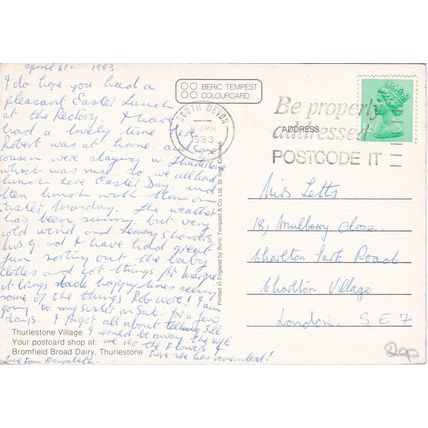 April 6th 1983
I do hope you had a
pleasant Easter Lunch
at the Rectory. I have
had a lovely time here
Robert was at home and some
cousins were staying in Thurlestone
which was nice so we all had
lunch here Easter Day and
then lunch with them on
Easter Monday. The weather
has been sunny but very
cold wind and heavy showers.
and I have had great
fun sorting out the baby
clothes and got things for
things made happy times seeing
some of the things Rob wore! I am
going to my sister on Sat. for a few
days. I forgot all about telling Jill
I would be away the w/e
we do the flowers &
hope she has remembered!
Love from Elizabeth.
BERIC TEMPEST
COLOURCARD
SOUTH DEVON
PM
1983
Be properly
addressed
POSTCODE IT
ADDRESS
Miss Letts
18, Mulberry Close,
Charlton Park Road
Charlton Village
London. S E 7
Printed in England by Beric Tempest & Co. Ltd. St. Ives, Cornwall
Thurlestone Village
Your postcard shop at:
Bromfield Broad Dairy, Thurlestone
20p